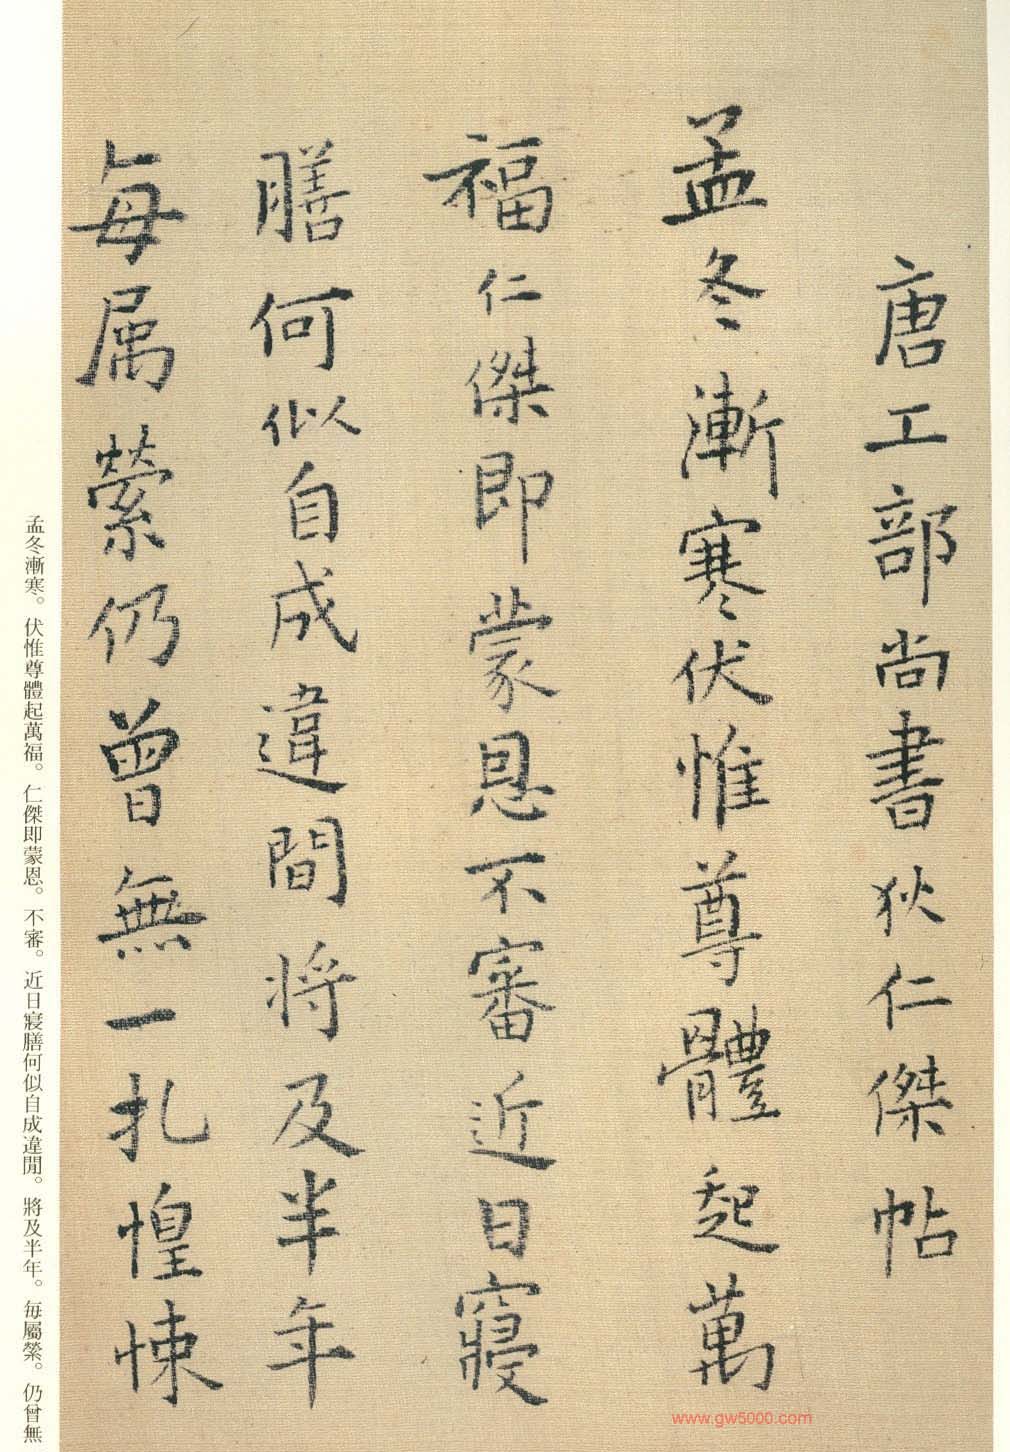 唐工部尚書狄仁傑帖
孟冬漸寒伏惟尊體起萬
福仁傑即蒙恩不審近日寢
膳何似自成違間將及半年
每属縈仍曾無一扎惶悚
孟冬漸寒。伏惟尊體起萬福。仁傑即蒙恩。不審。近日寢膳何似自成違閒。將及半年。每屬縈。仍曾無
www.gw5000.com